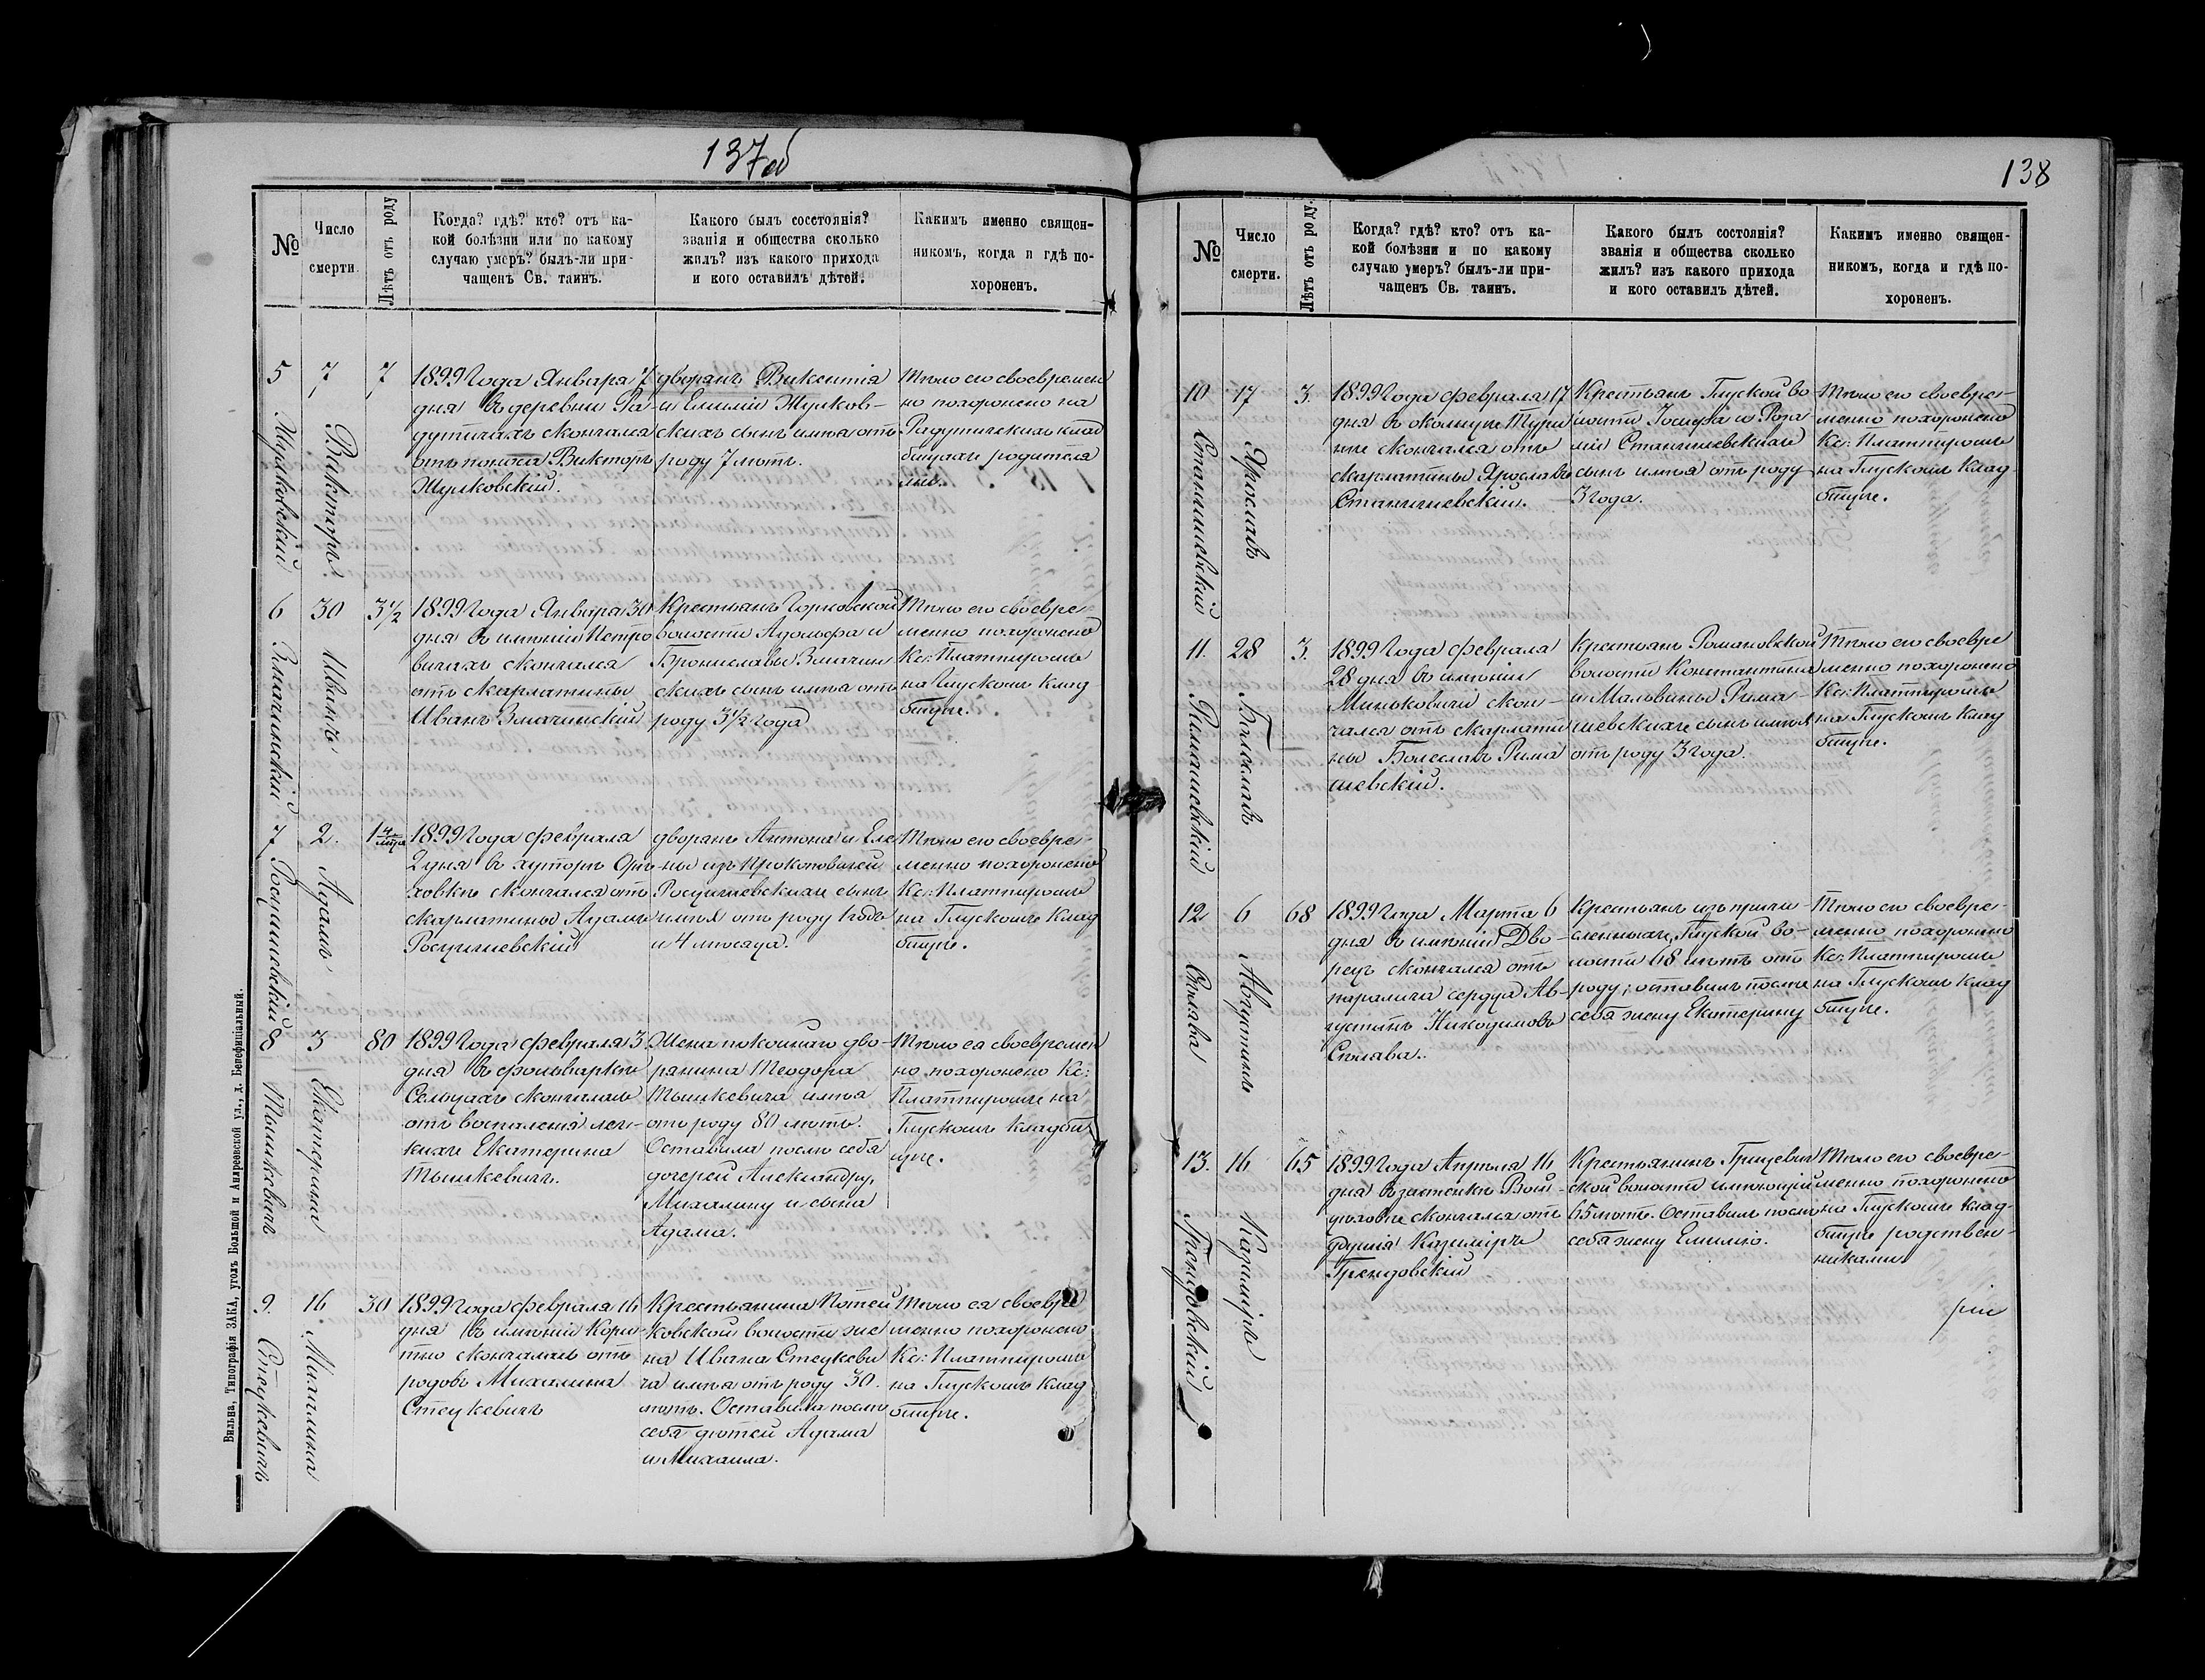 137об
№
Число
смерти.
Лѣтъ отъ роду
Когда? гдѣ? кто? отъ ка-
кой болѣзни или по какому
случаю умеръ? былъ-ли при-
чащенъ Св. таинъ.
Какого былъ состоянія?
званія и общества сколько
жилъ? изъ какого прихода
и кого оставилъ дѣтей.
Какимъ именно священ-
никомъ, когда и гдѣ по-
хороненъ.
5
Жулковскій
7
Викторъ
7
1899 Года Января 7
дня въ деревни Ра-
дутичахъ скончался
отъ поноса Викторъ
Жулковскій.
дворянъ Викентія
и Емиліи Жулков-
скихъ сынъ имѣя отъ
роду 7 лѣтъ.
Тѣло его своевремен
но похоронено на
Радутичскихъ клад
бищахъ родителя
ми.
6
30
Иванъ
3½
1899 Года Января 30
дня въ имѣніи Петро
вичахъ скончался
отъ скарлатины
Иванъ Змачинскій
Крестьянъ Горковской
волости Адольфа и
Брониславы Змачин
скихъ сынъ имѣя отъ
роду 3½ года
Тѣло его своевре-
менно похоронено
Кс: Платпиромъ
на Глускомъ клад
бищѣ.
7
Росцишевскій
2.
Адамъ
1 4/мѣся
1899 Года Февраля
2 дня въ хуторѣ Орѣ-
ховкѣ скончался отъ
скарлатины Адамъ
Росцишевскій
дворянъ Антона и Еле
ны изъ Прокоповичей
Росцишевскихъ сынъ
имѣя отъ роду 1 годъ
и 4 мѣсяца.
Тѣло его своевре-
менно похоронено
Кс: Платпиромъ
на Глускомъ клад
бищѣ.
8
Тышкевичъ
3
Екатерина
80
1899 Года Февраля 3
дня въ фольваркѣ
Сельцахъ скончалась
отъ воспаленія лег-
кихъ Екатерина
Тышкевичъ.
Жена покойнаго дво-
рянина Теодора
Тышкевича имѣя
отъ роду 80 лѣтъ.
Оставила послѣ себя
дочерей Александру,
Михалину и сына
Адама.
Тѣло ея своевремен
но похоронено Кс:
Платпиромъ на
Глускомъ кладби
щѣ.
9.
Стецкевичъ
16.
Михалина
30
1899 Года Февраля 16
дня въ имѣніи Кори-
тно скончалась отъ
родовъ Михалина
Стецкевичъ
Крестьянина Потей
ковской волости же
на Ивана Стецкеви
ча имѣя отъ роду 30.
лѣтъ. Оставила послѣ
себя дѣтей Адама
и Михаила.
Тѣло ея своевре
менно похоронено
Кс: Платпиромъ
на Глускомъ клад
бищѣ.
Вильна, Типографія ЗАКА, уголъ Большой и Андреевской ул., д. Бенефиціальный.
138
№
Число
смерти.
Лѣтъ отъ роду.
Когда? гдѣ? кто? отъ ка-
кой болѣзни и по какому
случаю умеръ? былъ-ли при-
чащенъ Св. таинъ.
Какого былъ состоянія?
званія и общества сколько
жилъ? изъ какого прихода
и кого оставилъ дѣтей.
Какимъ именно священ-
никомъ, когда и гдѣ по-
хороненъ.
10
Станишевскій
17
Ярославъ
3
1899 Года Февраля 17
дня въ околицѣ Тури
нѣ скончался отъ
скарлатины Ярославъ
Станишевскій.
Крестьянъ Глуской во
лости Іосифа и Роза-
ліи Станишевскихъ
сынъ имѣя отъ роду
3 года.
Тѣло его своевре-
менно похоронено
Кс: Платпиромъ
на Глускомъ клад-
бищѣ.
11.
Римашевскій
28
Болеславъ
3.
1899 Года Февраля
28 дня въ имѣніи
Миньковичи скон-
чался отъ скарлати
ны Болеславъ Рима
шевскій.
Крестьянъ Романовской
волости Константина
и Мальвины Рима-
шевскихъ сынъ имѣя
отъ роду 3 года.
Тѣло его своевре
менно похоронено
Кс: Платпиромъ
на Глускомъ клад
бищѣ.
12
6
Августинъ
68
1899 Года Марта 6
дня въ имѣніи Дво-
рецъ скончался отъ
паралича сердца Ав-
густинъ Никодимовъ
Крестьянъ изъ причи-
сленныхъ, Глуской во-
лости 68 лѣтъ отъ
роду; оставилъ послѣ
себя жену Екатерину
Тѣло его своевре-
менно похоронено
Кс: Платпиромъ
на Глускомъ клад
бищѣ.
13.
Грендовскій
16
Казиміръ
65
1899 Года Апрѣля 16
дня въ застенкѣ Вой-
скончался отъ
Казиміръ
Грендовскій
Крестьянинъ Грицевич
ской волости имѣющій
65 лѣтъ. Оставилъ послѣ
себя жену Емилію.
Тѣло его своевре-
менно похоронено
на Глускомъ клад-
бищѣ родствен-
никами